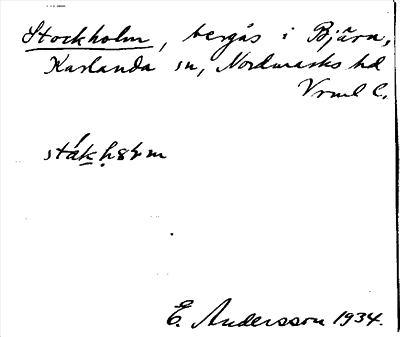 Stockholm, bergås i Bjärn,
Karlanda sn, Nordmarks hd
Vrml C.
E. Andersson 1934.